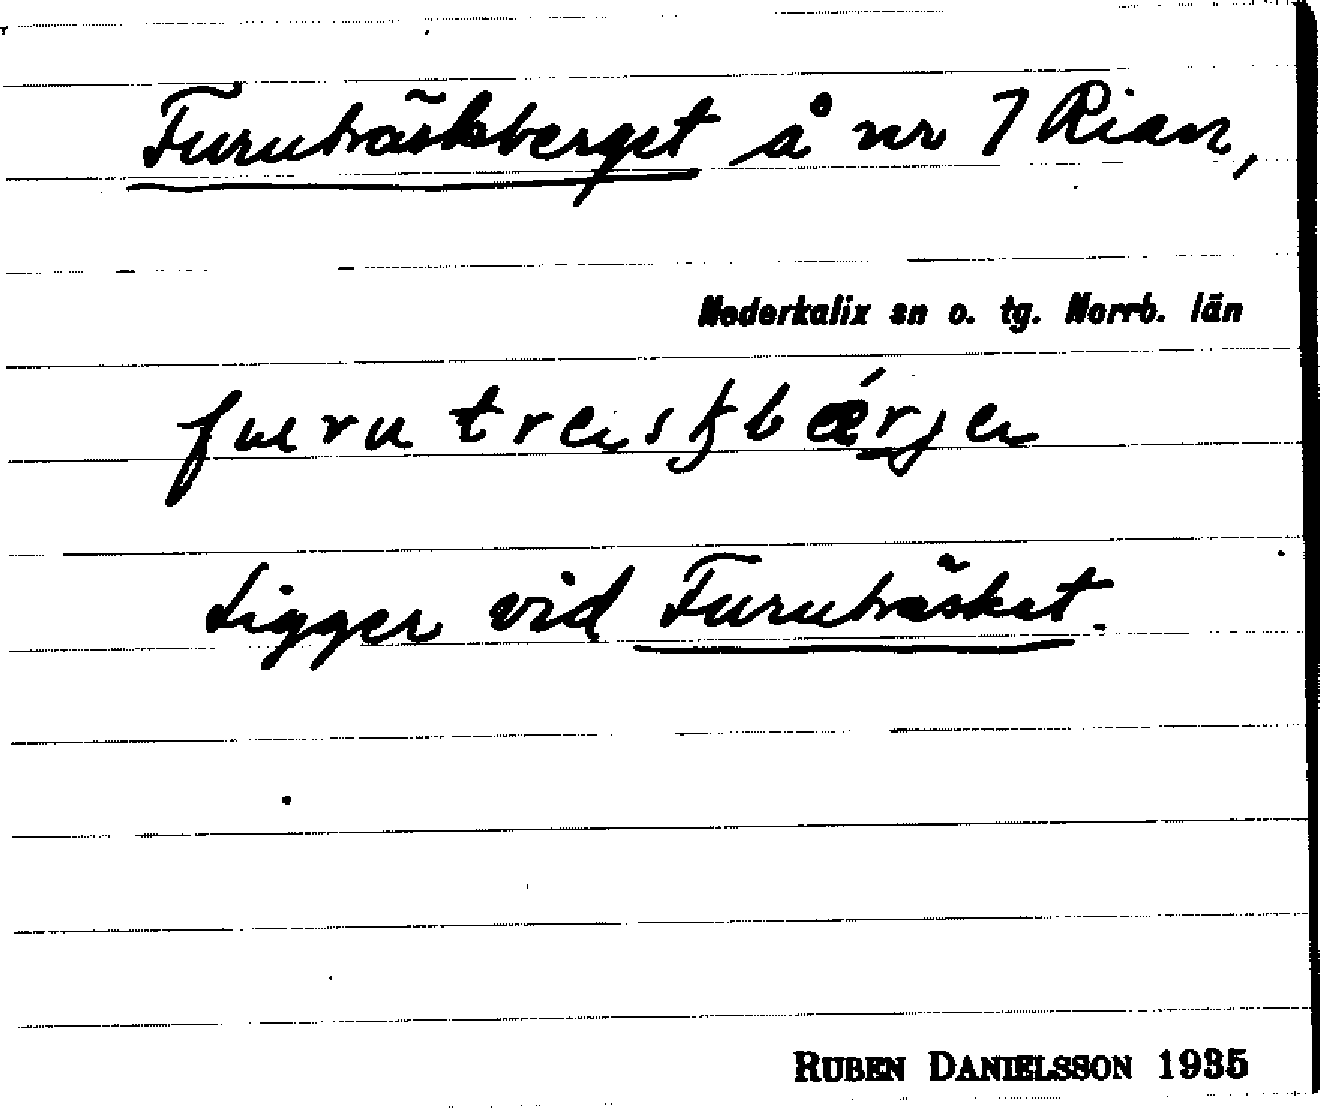 Furuträskberget å nr 7 Rian,
Nederkalix sn o. tg. Norrb. län
Ligger vid Furuträsket.
RUBEN DANIELSSON 1935